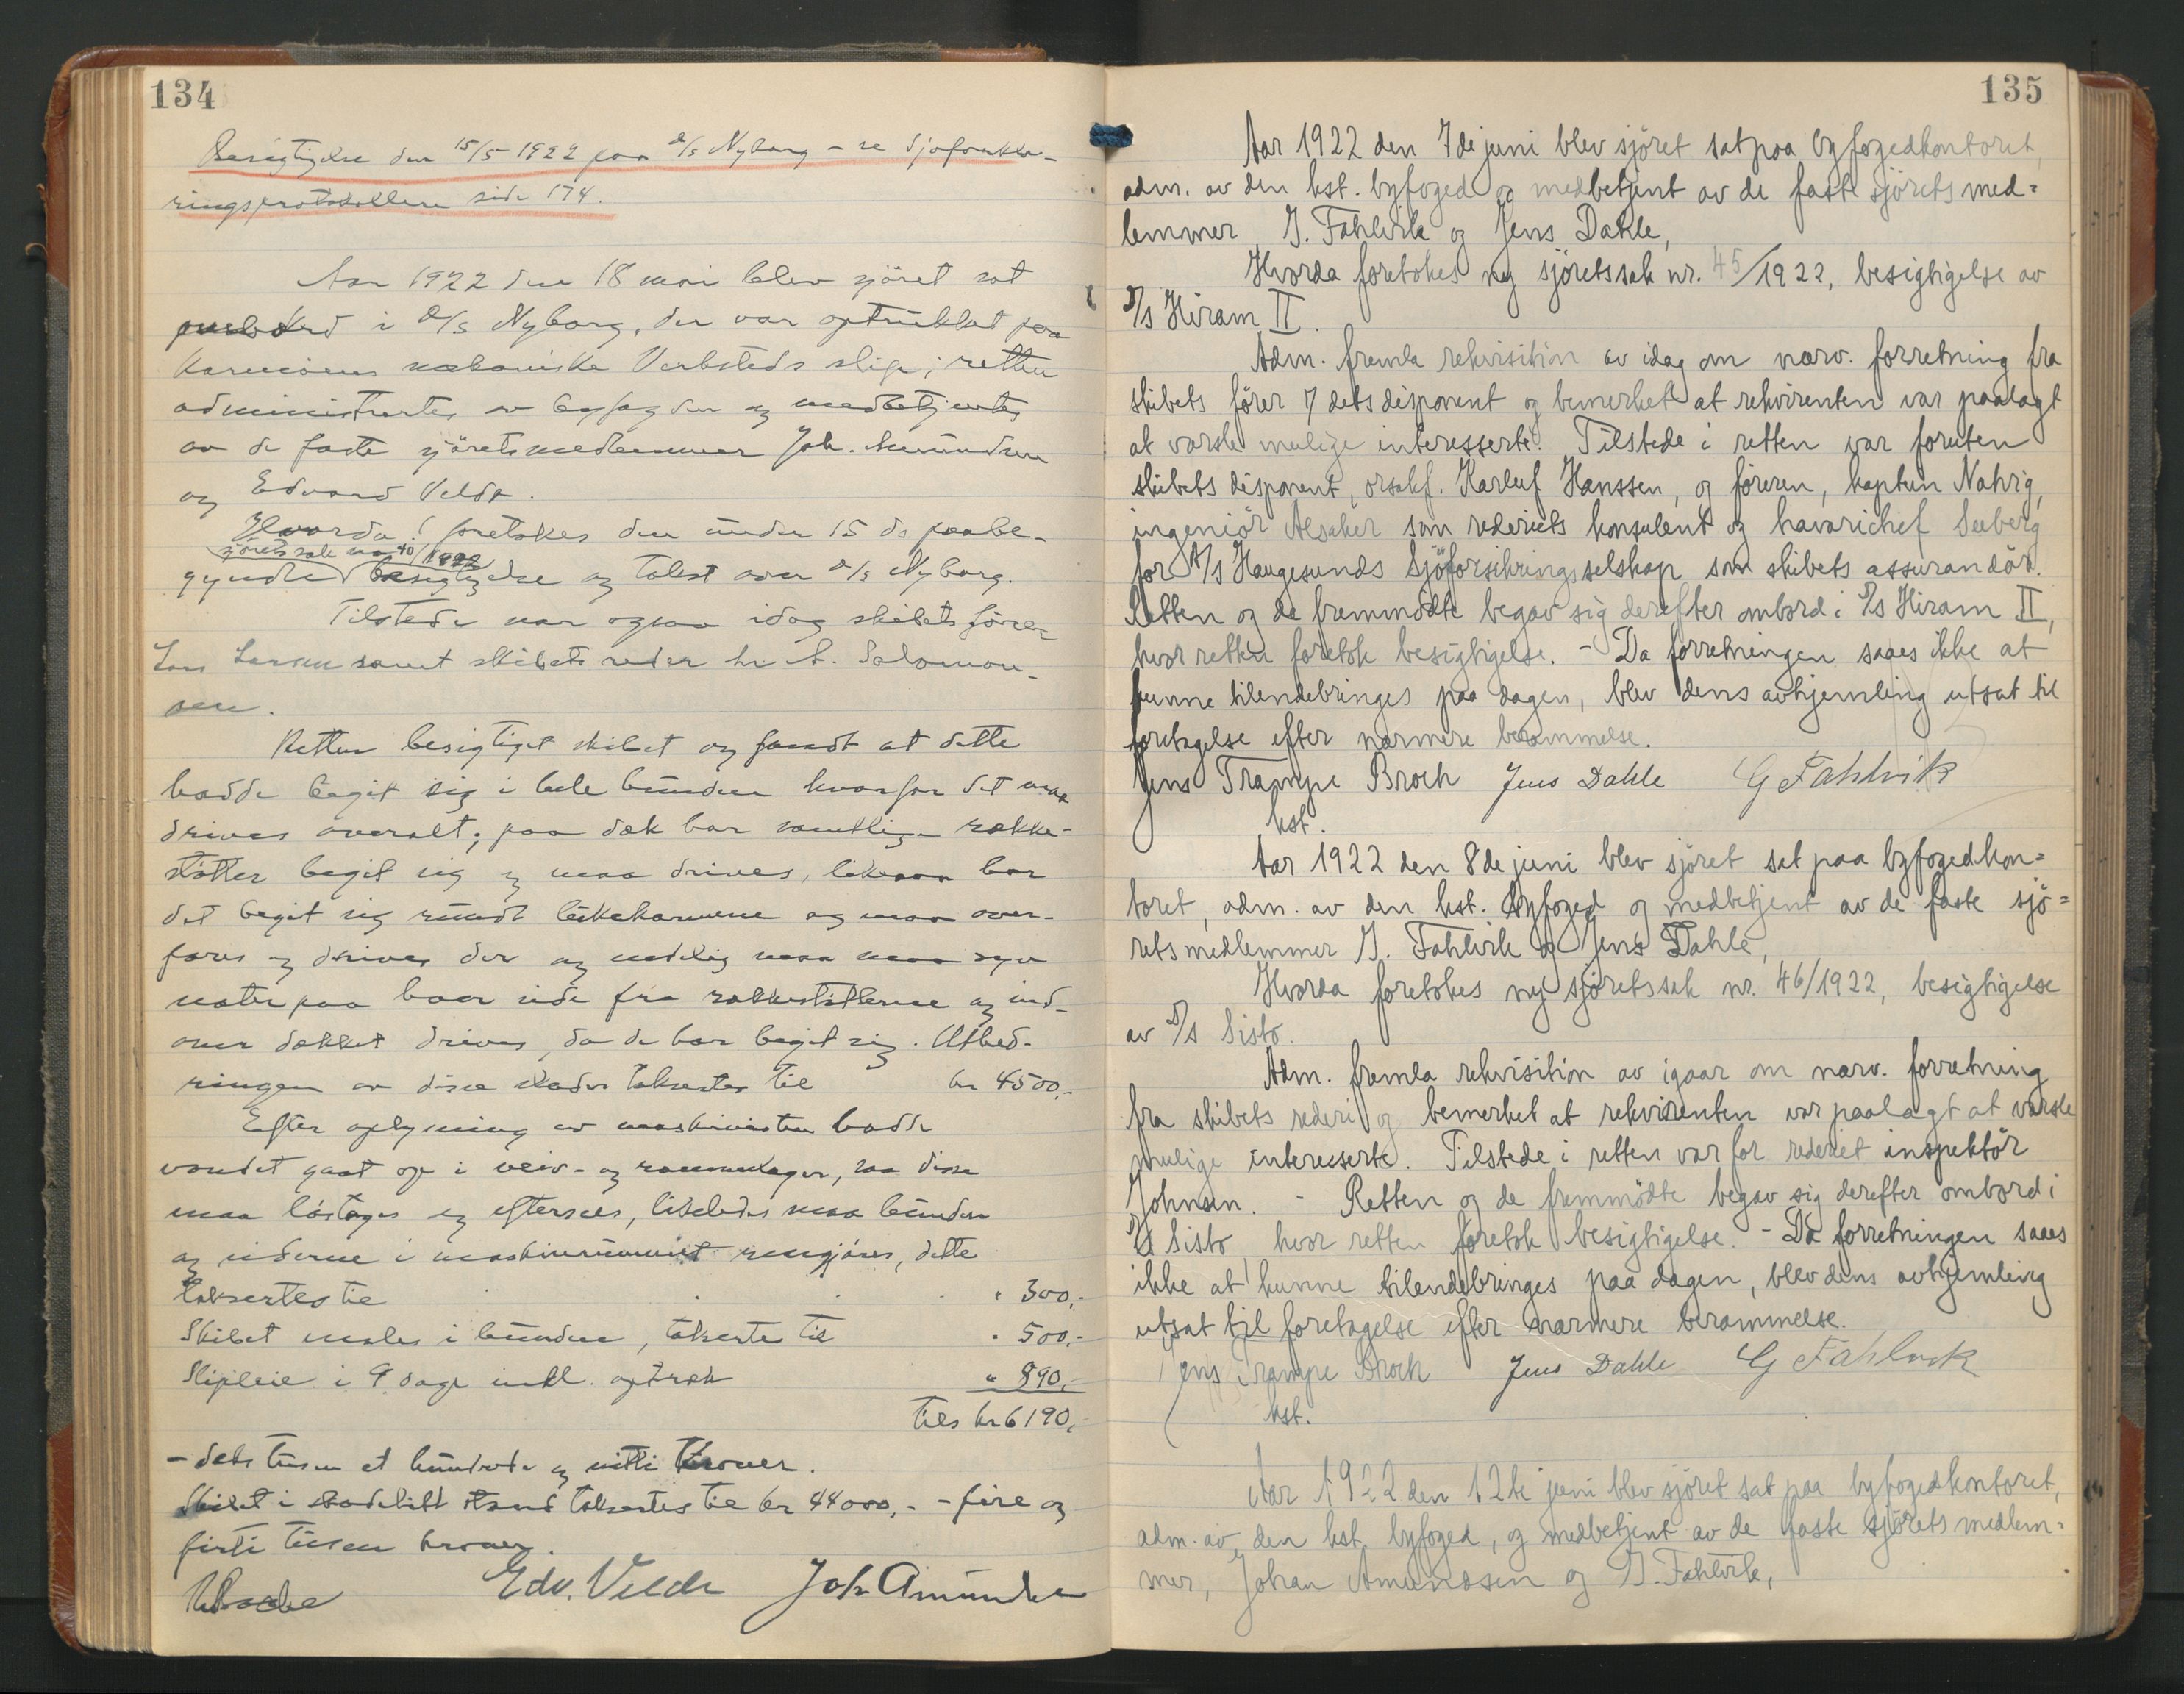 134
Besigtigelse den 15/5 1922 paa d/s Nyborg - se Sjøforkla-
ringsprotokollen side 174.
Aar 1922 den 18 mai blev sjöret sat
ombord i d/s Nyborg, der var optrukket paa
Karmöens mekaniske Verksteds slip; retten
administrertes av byfogden og medbetjentes
av de faste sjöretsmedlemmer Joh. Amundsen
og Edvard Velde.
Hvorda! foretokes den under 15 ds paabe-
sjöretssak no 40/1922
gyndte besigtigelse og takst over d/s Nyborg.
Tilstede var ogsaa idag skibets förer
Lars Larsen samt skibets reder hr A. Salomon-
sen.
Retten besigtiget skibet og fandt at dette
hadde begit sig i hele bunden hvorfor det maa
drives overalt; paa dæk har samtlige række-
stötter begit sig og maa drives, likesaa har
det begit sig rundt lukekarmene og maa over-
fares og drives der og endelig maa syv
nater paa hver side fra rækkestötterne og ind-
over dækket drives, da de har begit sig. Utbed-
ringen av disse skader takseres til kr 4500,-
Efter oplysning av maskinisten hadde
vandet gaat op i veiv- og rammelager, saa disse
maa löstages og efterses, likeledes maa bunden
og siderne i maskinrummet rengjöres, dette
taksertes til " 300,-
Skibet males i bunden, takserte til " 500,-
Slipleie i 9 dage inkl. optræk " 890,-
tils kr 6190,-
- seks tusen et hundrede og nitti kroner.
Skibet i skadelidt stand taksertes til kr 44000,- - fire og
firti tusen kroner.
Edv. Velde Joh Amundsen
135
Aar 1922 den 7de juni blev sjöret sat paa byfogedkontoret,
adm. av den kst. byfoged og medbetjent av de faste sjörets med=
lemmer, G. Fahlvik og Jens Dahle,
Hvorda foretokes ny sjöretssak nr. 45/1922, besigtigelse av
D/s Hiram II.
Adm. fremla rekvisition av idag om nærv. forretning fra
skibets förer & dets disponent og bemerket at rekvirenten var paalagt
at varsle mulige interesserte. Tilstede i retten var foruten
skibets disponent, orsakf. Karluf Hanssen, og föreren, kaptein Nahrig,
ingeniör Alsaker som rederiets konsulent og havarichef Seeberg
for A/s Haugesunds Sjöforsikringsselskap som skibets assurandör.
Retten og de fremmödte begav sig derefter ombord i D/s Hiram II,
hvor retten foretok besigtigelse. - Da forretningen saaes ikke at
kunne tilendebringes paa dagen, blev dens avhjemling utsat til
foretagelse efter nærmere berammelse.
Jens Trampe Broch Jens Dahle G Fahlvik
kst.
Aar 1922 den 8de juni blev sjöret sat paa byfogedkon=
toret, adm. av den kst. byfoged og medbetjent av de faste sjö=
retsmedlemmer G. Fahlvik og Jens Dahle,
Hvorda foretokes ny sjöretssak nr. 46/1922, besigtigelse
av D/s Sisto.
Adm. fremla rekvisition av igaar om nærv. forretning
fra skibets rederi og bemerket at rekvirenten var paalagt at varsle
mulige interesserte. Tilstede i retten var for rederiet inspektör
Johnsen. - Retten og de fremmödte begav sig derefter ombord i
D/s Sisto hvor retten foretok besigtigelse. - Da forretningen saaes
ikke at kunne tilendebringes paa dagen, blev dens avhjemling
utsat til foretagelse efter nærmere berammelse.
Jens Trampe Broch Jens Dahle G Fahlvik
kst.
Aar 1922 den 12te juni blev sjöret sat paa byfogedkontoret,
adm. av den kst. byfoged, og medbetjent av de faste sjörets medlem=
mer, Johan Amundsen og G. Fahlvik,